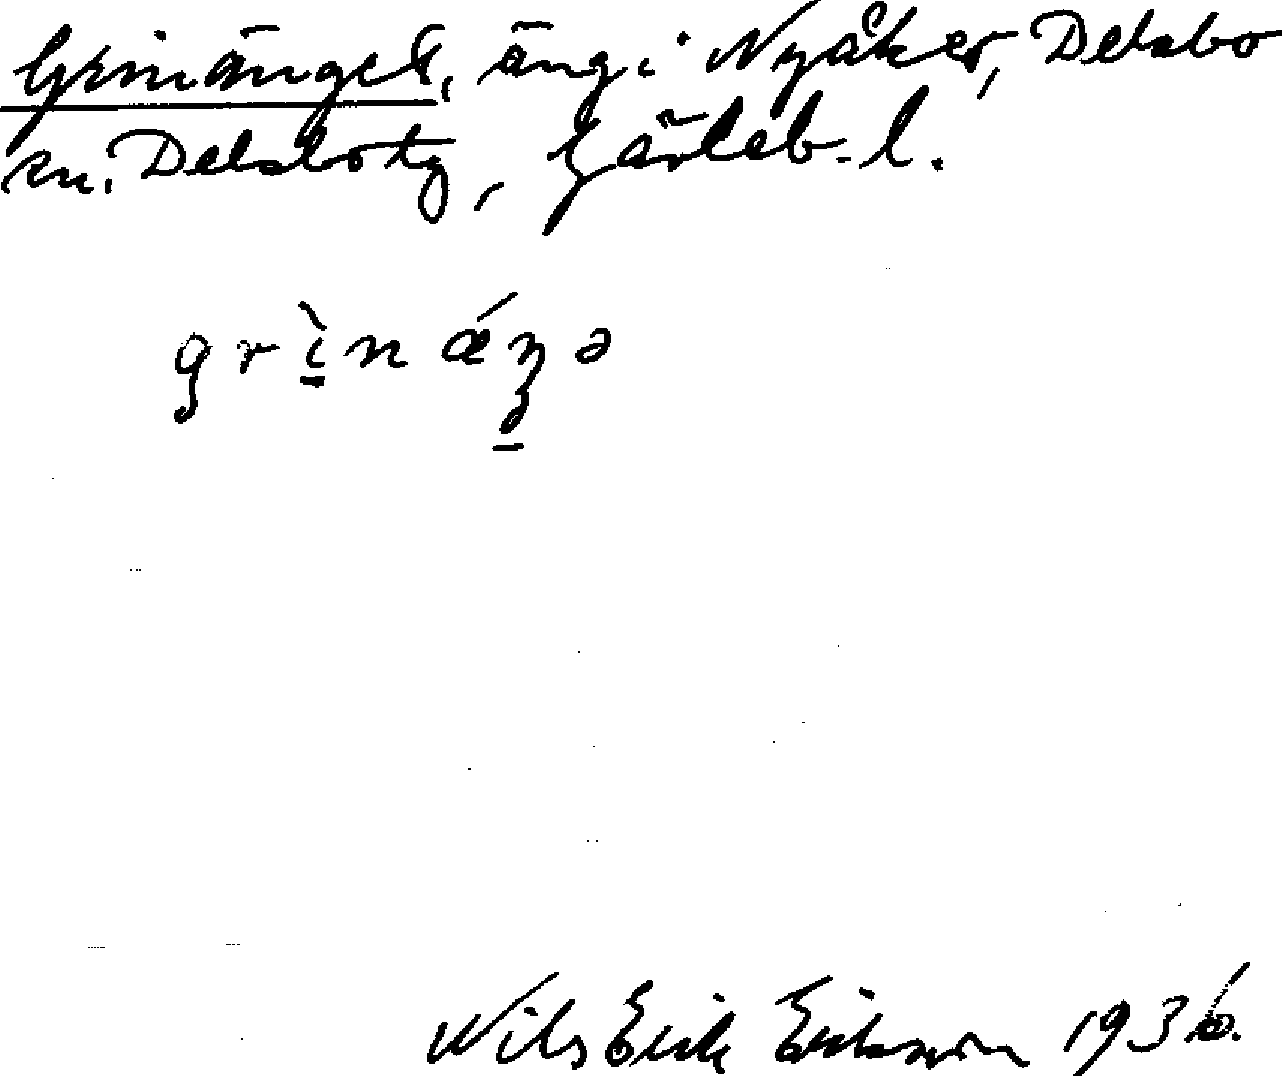 Grinänget, äng i Nyåker, Delsbo
sn. Delsbo tg, Gävleb. l.
grìnǽŋə
Nils Erik Eriksson 1936.